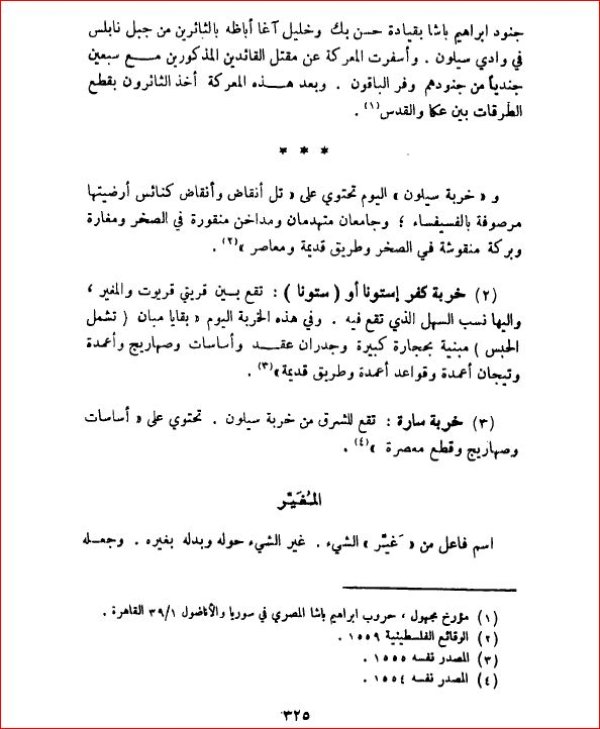 جنود ابراهيم باشا بقيادة حسن بك وخليل آغا أباظه بالثائرين من جبل نابلس
في وادي سيلون . وأسفرت المعركة عن مقتل القائدين المذكورين مع سبعين
جندياً من جنودهم وفر الباقون . وبعد هذه المعركة أخذ الثائرون بقطع
الطرقات بين عكا والقدس(١) .
* * *
و « خربة سيلون » اليوم تحتوي على « تل أنقاض وأنقاض كنائس أرضيتها
مرصوفة بالفسيفساء ؛ وجامعان متهدمان ومداخن منقورة في الصخر ومغارة
وبركة منقوشة في الصخر وطريق قديمة ومعاصر »(٢) .
(٢) خربة كفر إستونا أو ( ستونا ) : تقع بين قريتي قريوت والمغير ،
واليها نسب السهل الذي تقع فيه . وفي هذه الخربة اليوم « بقايا مبان ( تشمل
الحبس ) مبنية بحجارة كبيرة وجدران عقد وأساسات وصهاريج وأعمدة
وتيجان أعمدة وقواعد أعمدة وطريق قديمة»(٣) .
(٣) خربة سارة : تقع للشرق من خربة سيلون . تحتوي على « أساسات
وصهاريج وقطع معصرة »(٤) .
المُغَيِّر
اسم فاعل من « غَيَّر » الشيء . غير الشيء حوله وبدله بغيره . وجعله
(١) مؤرخ مجهول ، حروب ابراهيم باشا المصري في سوريا والأناضول ٣٩/١ القاهرة .
(٢) الوقائع الفلسطينية ١٥٥٩ .
(٣) المصدر نفسه ١٥٥٥ .
(٤) المصدر نفسه ١٥٥٤ .
٣٢٥